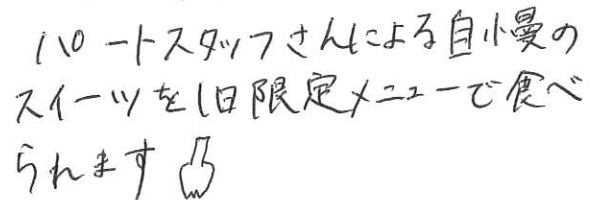 パートスタッフさんによる自慢の
スイーツを1日限定メニューで食べ
られます